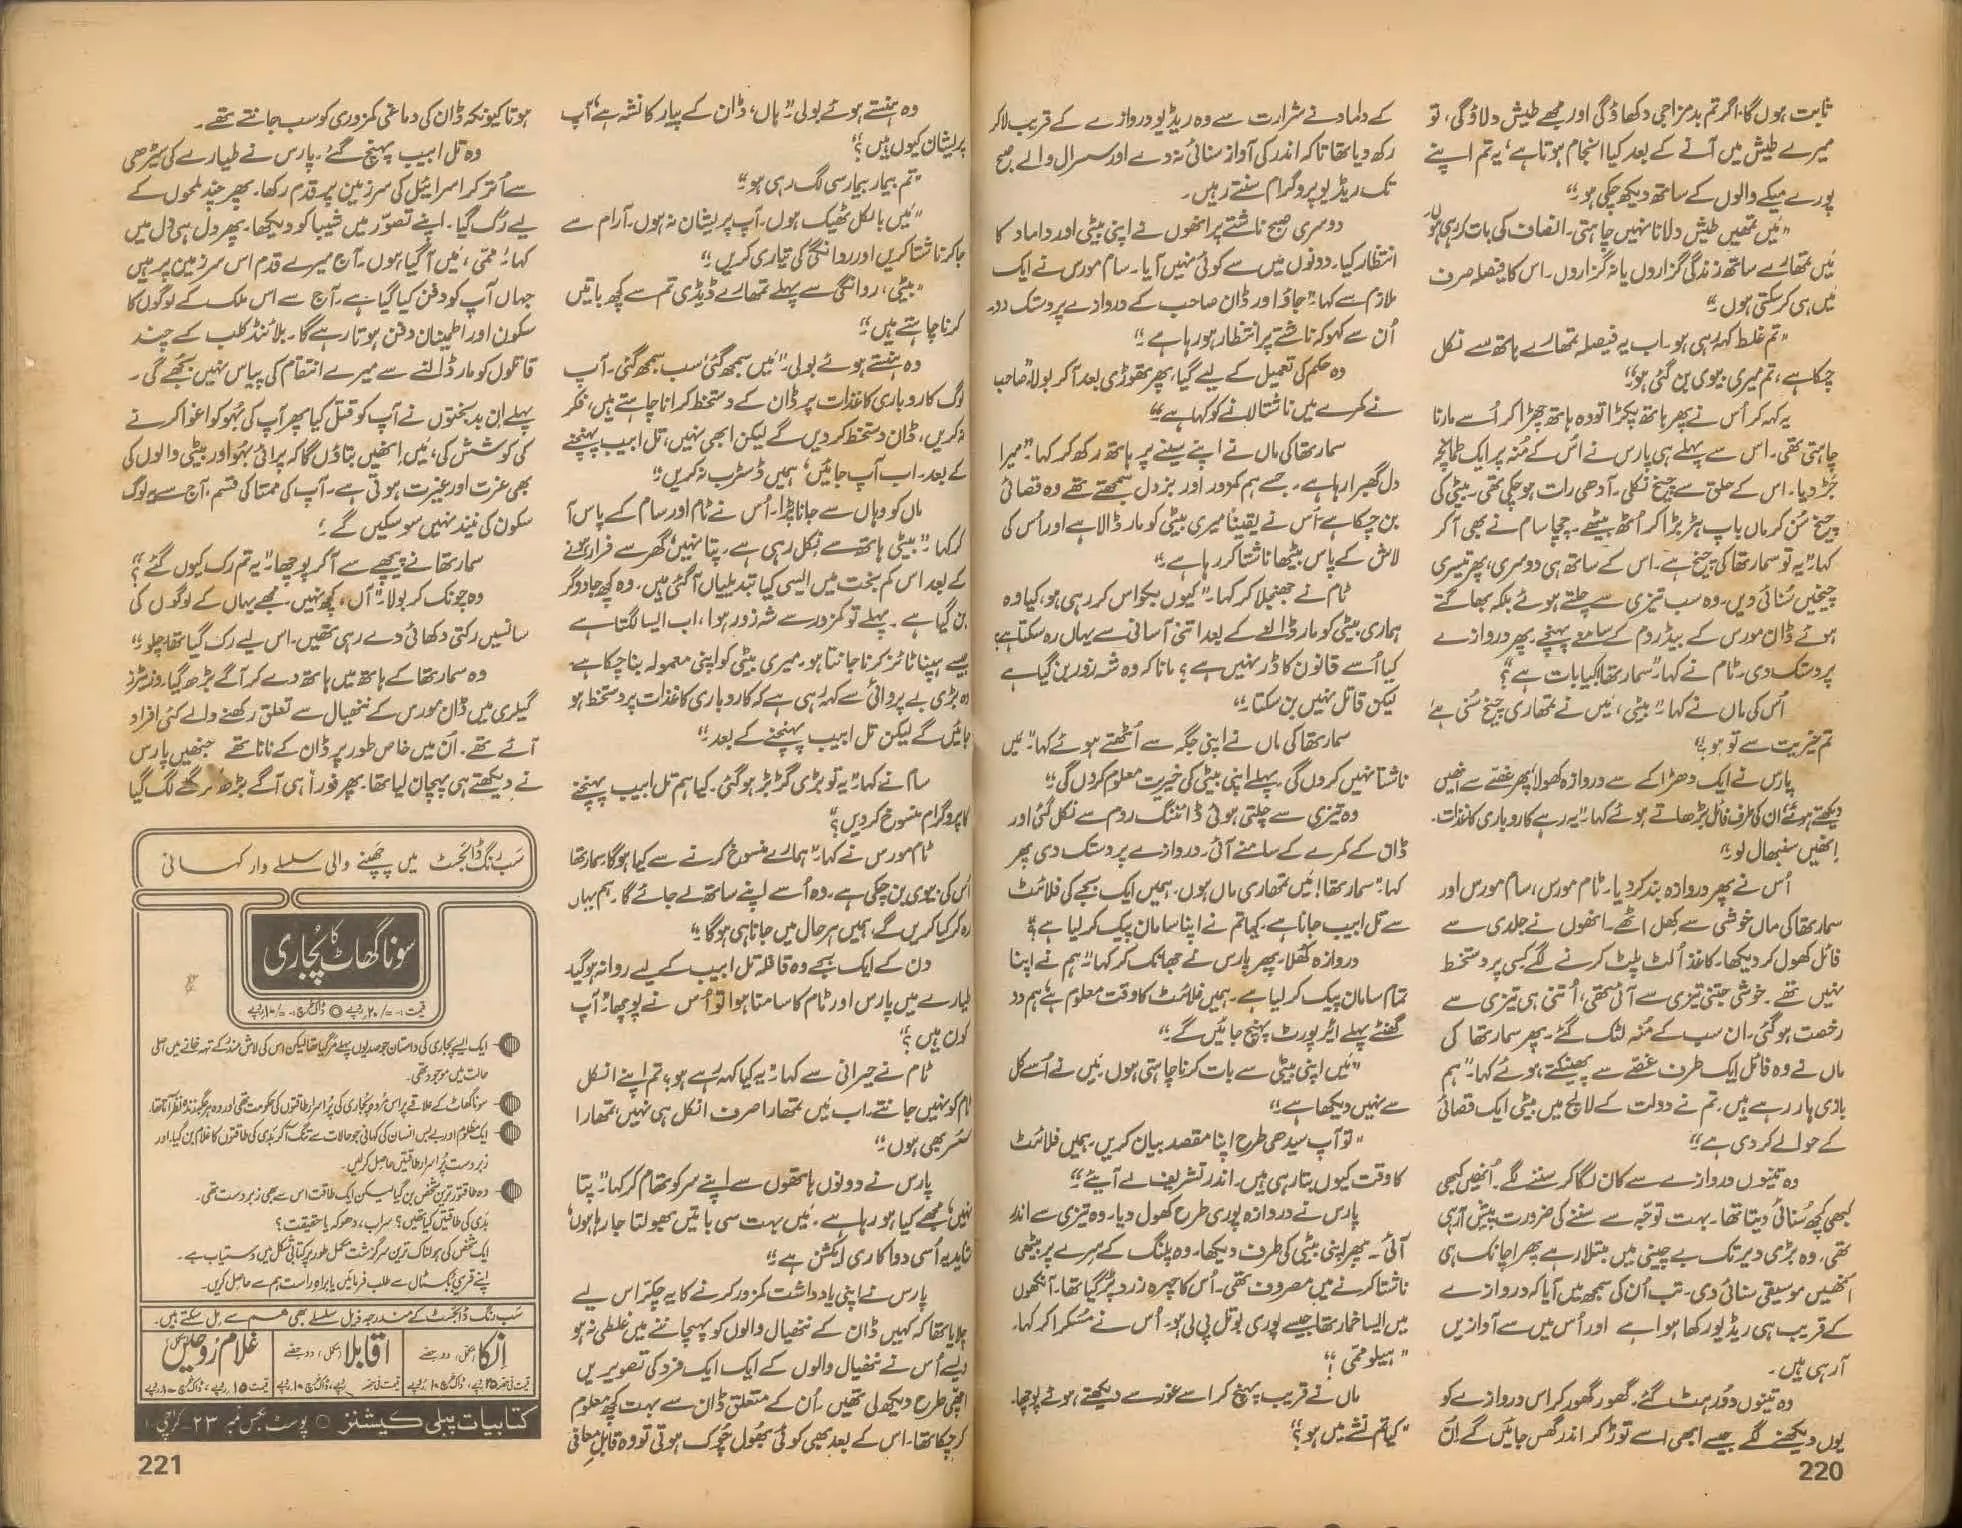 ثابت ہوں گا۔ اگر تم بدمزاجی دکھاؤ گی اور مجھے طیش دلاؤ گی، تو
میرے طیش میں آنے کے بعد کیا انجام ہوتا ہے، یہ تم اپنے
پورے میکے والوں کے ساتھ دیکھ چکی ہو۔"
"میں تمھیں طیش دلانا نہیں چاہتی۔ انصاف کی بات کر رہی ہوں۔
میں تمھارے ساتھ زندگی گزاروں یا نہ گزاروں۔ اس کا فیصلہ صرف
میں ہی کر سکتی ہوں۔"
"تم غلط کہہ رہی ہو۔ اب یہ فیصلہ تمھارے ہاتھ سے نکل
چکا ہے، تم میری بیوی بن گئی ہو۔"
یہ کہہ کر اُس نے پھر ہاتھ پکڑا تو وہ ہاتھ چھڑا کر اُسے مارنا
چاہتی تھی۔ اس سے پہلے ہی پارس نے اُس کے مُنہ پر ایک طمانچہ
جَڑ دیا۔ اس کے حلق سے چیخ نکلی۔ آدھی رات ہو چکی تھی۔ بیٹی کی
چیخ سُن کر ماں باپ ہڑبڑا کر اُٹھ بیٹھے۔ چچا سام نے بھی آ کر
کہا۔ "یہ تو سمارتھا کی چیخ ہے۔ اس کے ساتھ ہی دوسری، پھر تیسری
چیخیں سُنائی دیں۔ وہ سب تیزی سے چلتے ہوئے بلکہ بھاگتے
ہوئے ڈان مورس کے بیڈ روم کے سامنے پہنچے۔ پھر دروازے
پر دستک دی۔ ٹام نے کہا۔ "سمارتھا! کیا بات ہے؟"
اُس کی ماں نے کہا۔ "بیٹی، میں نے تمھاری چیخ سُنی ہے
تم خیریت سے تو ہو؟"
پارس نے ایک دھڑاکے سے دروازہ کھولا، پھر غصّے سے انھیں
دیکھتے ہوئے اُن کی طرف فائل بڑھاتے ہوئے کہا۔ "یہ رہے کاروباری کاغذات۔
انھیں سنبھال لو۔"
اُس نے پھر دروازہ بند کر دیا۔ ٹام مورس، سام مورس اور
سمارتھا کی ماں خوشی سے کھِل اٹھے۔ انھوں نے جلدی سے
فائل کھول کر دیکھا۔ کاغذ اُلٹ پلٹ کرنے لگے کسی پر دستخط
نہیں تھے۔ خوشی جتنی تیزی سے آئی تھی، اُتنی ہی تیزی سے
رخصت ہو گئی۔ ان سب کے مُنہ لٹک گئے۔ پھر سمارتھا کی
ماں نے وہ فائل ایک طرف غصّے سے پھینکتے ہوئے کہا۔ "ہم
بازی ہار رہے ہیں۔ تم نے دولت کے لالچ میں بیٹی ایک قصائی
کے حوالے کر دی ہے۔"
وہ تینوں دروازے سے کان لگا کر سننے لگے۔ اُنھیں کبھی
کبھی کچھ سُنائی دیتا تھا۔ بہت توجّہ سے سننے کی ضرورت پیش آ رہی
تھی۔ وہ بڑی دیر تک بے چینی میں مبتلا رہے پھر اچانک ہی
اُنھیں موسیقی سنائی دی۔ تب اُن کی سمجھ میں آیا کہ دروازے
کے قریب ہی ریڈیو رکھا ہوا ہے اور اُس میں سے آوازیں
آ رہی ہیں۔
وہ تینوں دُور ہٹ گئے۔ گھور گھور کر اس دروازے کو
یوں دیکھنے لگے جیسے ابھی اسے توڑ کر اندر گھس جائیں گے۔ اُن
220
کے داماد نے شرارت سے وہ ریڈیو دروازے کے قریب لا کر
رکھ دیا تھا تاکہ اندر کی آواز سنائی نہ دے اور سسرال والے صبح
تک ریڈیو پروگرام سنتے رہیں۔
دوسری صبح ناشتے پر انھوں نے اپنی بیٹی اور داماد کا
انتظار کیا۔ دونوں میں سے کوئی نہیں آیا۔ سام مورس نے ایک
ملازم سے کہا۔ "جاؤ اور ڈان صاحب کے دروازے پر دستک دو۔
اُن سے کہو کہ ناشتے پر انتظار ہو رہا ہے۔"
وہ حکم کی تعمیل کے لیے گیا، پھر تھوڑی بعد آ کر بولا۔ "صاحب
نے کمرے میں ناشتا لانے کو کہا ہے۔"
سمارتھا کی ماں نے اپنے سینے پر ہاتھ رکھ کر کہا۔ "میرا
دل گھبرا رہا ہے۔ جسے ہم کمزور اور بزدل سمجھتے تھے وہ قصائی
بن چکا ہے، اُس نے یقیناً میری بیٹی کو مار ڈالا ہے اور اُس کی
لاش کے پاس بیٹھا ناشتا کر رہا ہے۔"
ٹام نے جھنجلا کر کہا۔ "کیوں بکواس کر رہی ہو، کیا وہ
ہماری بیٹی کو مار ڈالنے کے بعد اتنی آسانی سے یہاں رہ سکتا ہے،
کیا اُسے قانون کا ڈر نہیں ہے؟ مانا کہ وہ شہ زور بن گیا ہے
لیکن قاتل نہیں بن سکتا۔"
سمارتھا کی ماں نے اپنی جگہ سے اُٹھتے ہوئے کہا۔ "میں
ناشتا نہیں کروں گی۔ پہلے اپنی بیٹی کی خیریت معلوم کروں گی۔"
وہ تیزی سے چلتی ہوئی ڈائننگ روم سے نکل گئی اور
ڈان کے کمرے کے سامنے آئی۔ دروازے پر دستک دی پھر
کہا۔ "سمارتھا! میں تمھاری ماں ہوں۔ ہمیں ایک بجے کی فلائٹ
سے تل ابیب جانا ہے۔ کیا تم نے اپنا سامان پیک کر لیا ہے؟"
دروازہ کھُلا۔ پھر پارس نے جھانک کر کہا۔ "ہم نے اپنا
تمام سامان پیک کر لیا ہے۔ ہمیں فلائٹ کا وقت معلوم ہے، ہم دو
گھنٹے پہلے ایئرپورٹ پہنچ جائیں گے۔"
"میں اپنی بیٹی سے بات کرنا چاہتی ہوں۔ میں نے اُسے کل
سے نہیں دیکھا ہے۔"
"تو آپ سیدھی طرح اپنا مقصد بیان کریں۔ ہمیں فلائٹ
کا وقت کیوں بتا رہی ہیں۔ اندر تشریف لے آیئے۔"
پارس نے دروازہ پوری طرح کھول دیا۔ وہ تیزی سے اندر
آئی۔ پھر اپنی بیٹی کی طرف دیکھا۔ وہ پلنگ کے سرے پر بیٹھی
ناشتا کرنے میں مصروف تھی۔ اُس کا چہرہ زرد پڑ گیا تھا۔ آنکھوں
میں ایسا خمار تھا جیسے پوری بوتل پی لی ہو۔ اُس نے مُسکرا کر کہا۔
"ہیلو ممّی!"
ماں نے قریب پہنچ کر اسے غور سے دیکھتے ہوئے پوچھا۔
"کیا تم نشے میں ہو؟"
وہ ہنستے ہوئے بولی۔ "ہاں، ڈان کے پیار کا نشہ ہے، آپ
پریشان کیوں ہیں؟"
"تم بیمار بیمار سی لگ رہی ہو۔"
"میں بالکل ٹھیک ہوں۔ آپ پریشان نہ ہوں۔ آرام سے
جا کر ناشتا کریں اور روانگی کی تیاری کریں۔"
"بیٹی، روانگی سے پہلے تمھارے ڈیڈی تم سے کچھ باتیں
کرنا چاہتے ہیں۔"
وہ ہنستے ہوئے بولی۔ "میں سمجھ گئی، سب سمجھ گئی۔ آپ
لوگ کاروباری کاغذات پر ڈان کے دستخط کرانا چاہتے ہیں، فکر
نہ کریں، ڈان دستخط کر دیں گے لیکن ابھی نہیں، تل ابیب پہنچنے
کے بعد۔ اب آپ جائیں، ہمیں ڈسٹرب نہ کریں۔"
ماں کو وہاں سے جانا پڑا۔ اُس نے ٹام اور سام کے پاس آ
کر کہا۔ "بیٹی ہاتھ سے نکل رہی ہے۔ پتا نہیں گھر سے فرار ہونے
کے بعد اس کم بخت میں ایسی کیا تبدیلیاں آ گئی ہیں۔ وہ کچھ جادوگر
بن گیا ہے۔ پہلے تو کمزور سے شہ زور ہوا، اب ایسا لگتا ہے
جیسے ہپناٹائز کرنا جانتا ہو۔ میری بیٹی کو اپنی معمولہ بنا چکا ہے۔
وہ بڑی بے پروائی سے کہہ رہی ہے کہ کاروباری کاغذات پر دستخط ہو
جائیں گے لیکن تل ابیب پہنچنے کے بعد۔"
سام نے کہا۔ "یہ تو بڑی گڑبڑ ہو گئی۔ کیا ہم تل ابیب پہنچنے
کا پروگرام منسوخ کر دیں؟"
ٹام مورس نے کہا۔ "ہمارے منسوخ کرنے سے کیا ہوگا۔ سمارتھا
اُس کی بیوی بن چکی ہے۔ وہ اُسے اپنے ساتھ لے جائے گا۔ ہم یہاں
رہ کر کیا کریں گے، ہمیں ہر حال میں جانا ہی ہوگا۔"
دن کے ایک بجے وہ قافلہ تل ابیب کے لیے روانہ ہو گیا۔
طیارے میں پارس اور ٹام کا سامنا ہوا تو اُس نے پوچھا۔ "آپ
کون ہیں؟"
ٹام نے حیرانی سے کہا۔ "یہ کیا کہہ رہے ہو؟ تم اپنے انکل
ٹام کو نہیں جانتے۔ اب میں تمھارا صرف انکل ہی نہیں، تمھارا
سُسر بھی ہوں۔"
پارس نے دونوں ہاتھوں سے اپنے سر کو تھام کر کہا۔ "پتا
نہیں، مجھے کیا ہو رہا ہے۔ میں بہت سی باتیں بھولتا جا رہا ہوں،
شاید یہ اُسی دوا کا ری ایکشن ہے۔"
پارس نے اپنی یادداشت کمزور کرنے کا یہ چکر اس لیے
چلایا تھا کہ کہیں ڈان کے ننھیال والوں کو پہچاننے میں غلطی نہ ہو
ویسے اُس نے ننھیال والوں کے ایک ایک فرد کی تصویریں
اچھی طرح دیکھ لی تھیں۔ اُن کے متعلق ڈان سے بہت کچھ معلوم
کر چکا تھا۔ اس کے بعد بھی کوئی بھُول چُوک ہوتی تو وہ قابلِ معافی
ہوتا کیونکہ ڈان کی دماغی کمزوری کو سب جانتے تھے۔
وہ تل ابیب پہنچ گئے۔ پارس نے طیارے کی سیڑھی
سے اُتر کر اسرائیل کی سرزمین پر قدم رکھا۔ پھر چند لمحوں کے
لیے رُک گیا۔ اپنے تصوّر میں شیبا کو دیکھا۔ پھر دل ہی دل میں
کہا۔ "ممّی، میں آ گیا ہوں۔ آج میرے قدم اس سرزمین پر ہیں
جہاں آپ کو دفن کیا گیا ہے۔ آج سے اس ملک کے لوگوں کا
سکون اور اطمینان دفن ہوتا رہے گا۔ بلائنڈ کلب کے چند
قاتلوں کو مار ڈالنے سے میرے انتقام کی پیاس نہیں بجھے گی۔
پہلے اِن بدبختوں نے آپ کو قتل کیا پھر آپ کی بہُو کو اغوا کرنے
کی کوشش کی، میں اِنھیں بتاؤں گا کہ پرائی بہُو اور بیٹی والوں کی
بھی عزت اور غیرت ہوتی ہے۔ آپ کی ممتا کی قسم، آج سے یہ لوگ
سکون کی نیند نہیں سو سکیں گے۔"
سمارتھا نے پیچھے سے آ کر پوچھا۔ "یہ تم رک کیوں گئے؟"
وہ چونک کر بولا۔ "آں، کچھ نہیں۔ مجھے یہاں کے لوگوں کی
سانسیں رکتی دکھائی دے رہی تھیں۔ اس لیے رک گیا تھا، چلو۔"
وہ سمارتھا کے ہاتھ میں ہاتھ دے کر آگے بڑھ گیا۔ وزیٹرز
گیلری میں ڈان مورس کے ننھیال سے تعلق رکھنے والے کئی افراد
آئے تھے۔ اُن میں خاص طور پر ڈان کے نانا تھے جنھیں پارس
نے دیکھتے ہی پہچان لیا تھا۔ پھر فوراً ہی آگے بڑھ کر گلے لگ گیا
سب رنگ ڈائجسٹ میں چھپنے والی سلسلے وار کہانی
سونا گھاٹ کا پُجاری
قیمت:- /۲۰ روپے ڈاک خرچ:- /۱۰ روپے
ایک ایسے پجاری کی داستان جو صدیوں پہلے مر گیا تھا لیکن اس کی لاش مندر کے تہہ خانے میں اصلی
حالت میں موجود تھی۔
سونا گھاٹ کے علاقے پر اس مُردہ پجاری کی پُراسرار طاقتوں کی حکومت تھی اور وہ ہر جگہ زندہ نظر آتا تھا۔
ایک مظلوم اور بے بس انسان کی کہانی جو حالات سے تنگ آ کر بدی کی طاقتوں کا غلام بن گیا۔ اور
زبردست پُراسرار طاقتیں حاصل کر لیں۔
وہ طاقتور ترین شخص بن گیا لیکن ایک طاقت اس سے بھی زبردست تھی۔
بدی کی طاقتیں کیا تھیں؟ سراب، دھوکہ یا حقیقت؟
ایک شخص کی ہولناک ترین سرگزشت مکمل طور پر کتابی شکل میں دستیاب ہے۔
اپنے قریبی بُک سٹال سے طلب فرمائیں یا براہِ راست ہم سے حاصل کریں۔
سب رنگ ڈائجسٹ کے مندرجہ ذیل سلسلے بھی ہم سے مل سکتے ہیں۔
اِنکا (مکمل، دو حصّے) اقابلا (مکمل، دو حصّے) غلام رُوحیں
قیمت فی حصّہ ۲۵ روپے، ڈاک خرچ ۱۰ روپے قیمت فی حصّہ روپے، ڈاک خرچ ۱۰ روپے قیمت ۱۵ روپے، ڈاک خرچ ۱۰ روپے
کتابیات پبلی کیشنز پوسٹ بکس نمبر ۲۳ - کراچی ۱
221